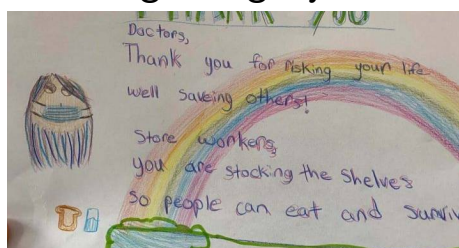 THANK YOU
Doctors,
Thank you for risking your life
well saveing others!
Store workers,
you are stocking the shelves
so people can eat and